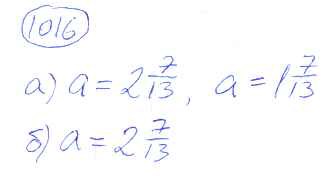 1016
а) a = 2 7/13, a = 1 7/13
б) a = 2 7/13